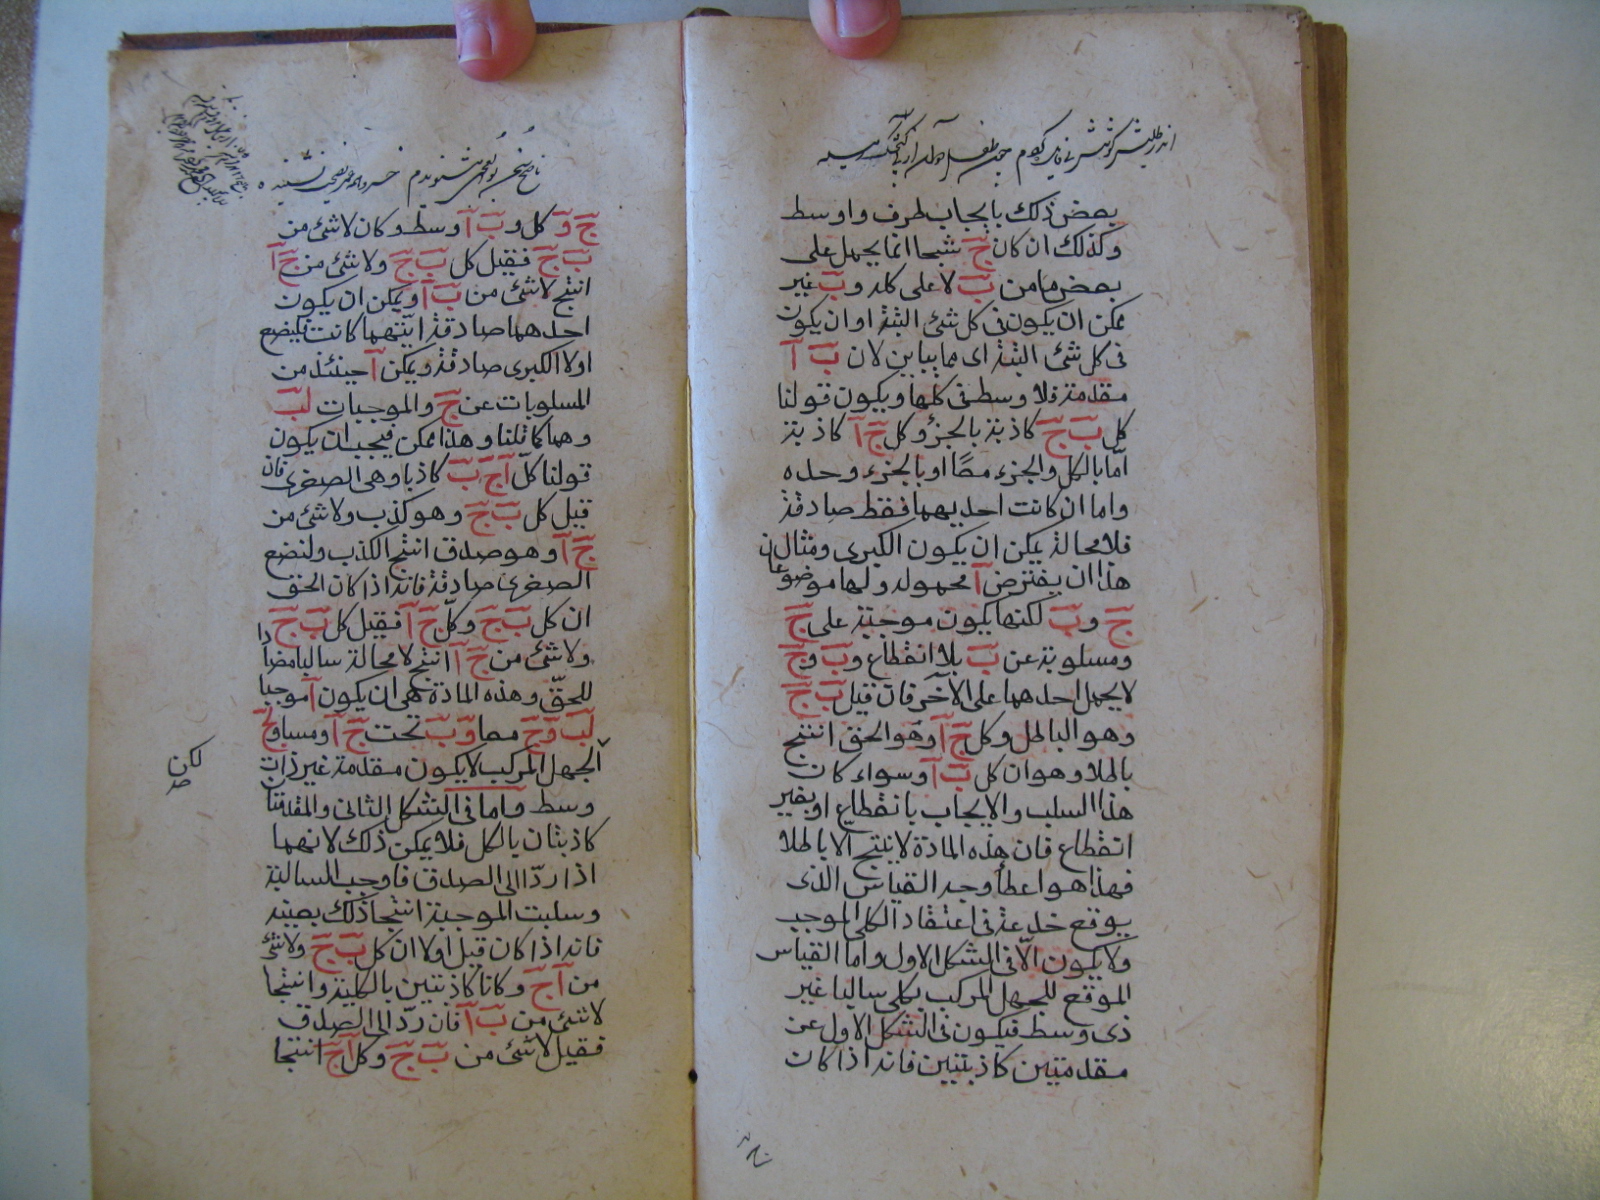 بعض ذلك بايجاب طرف واوسط
وكذلك ان كان ج شيا انما يحمل على
بعض ما من ب لا على كله و ب غير
ممكن ان يكون فى كل شئ البتة او ان يكون
فى كل شئ البتة اى مما يباين لان ب آ
مقدمة فلا وسط فى كلها ويكون قولنا
كل ب ج كاذبة بالجزؤ وكل ج آ كاذبة
امّا بالكل والجزء معًا او بالجزء وحده
واما ان كانت احديهما فقط صادقة
فلا محالة يمكن ان يكون الكبرى ومثال
هذا ان يفترض آ محموله ولها موضوعان
ج و ب لكنها يكون موجبة على ج
ومسلوبة عن ب بلا انقطاع و ب و ج
لا يحمل احدهما على الآخر فان قيل ب ج
وهو الباطل وكل ج آ وهو الحق انتج
باطلا وهو ان كل ب آ وسواء كان
هذا السلب والايجاب بانقطاع او بغير
انقطاع فان هذه المادة لا ينتج الا باطلا
فهذا هو اعطأ وجه القياس الذى
يوقع خدعة فى اعتقاد الكلى الموجب
ولا يكون الّا فى الشكل الاول واما القياس
الموقع للجهل المركب بكلى سالبا غير
ذى وسط فيكون فى الشكل الاول عن
مقدمتين كاذبتين فانه اذا كان
ج و كل و ب آ وسط وكان لا شئ من
ب ج فقيل كل ب ج ولا شئ من ج آ
انتج لا شئ من ب آ ويمكن ان يكون
احدهما صادقة ايّتهما كانت فليضع
اولا الكبرى صادقة ويمكن آ حينئذ من
المسلوبات عن ج والموجبات لب
وهما كما قلنا وهذا ممكن فيجب ان يكون
قولنا كلّ آ ج ب كاذبا وهى الصغرى فان
قيل كل ب ج وهو كذب ولا شئ من
ج آ وهو صدق انتج الكذب ولنضع
الصغرى صادقة فانه اذا كان الحق
ان كل ب ج وكلّ ج آ فقيل كل ب ج
ولا شئ من ج آ انتج لا محالة سالبا مضادا
للحقّ وهذه المادة هى ان يكون آ موجبا
لب و ج معا و ب تحت ج آ ومساوٍ ج
الجهل المركب لا يكون مقدمة غير ذات
لكن
وسط واما فى الشكل الثانى والمقدمتان
كاذبتان بالكل فلا يمكن ذلك لانهما
اذا ردّا الى الصدق فاوجب السالبة
وسلبت الموجبة انتجا ذلك بعينه
فانه اذا كان قيل اولا ان كل ب ج ولا شئ
من آ ج وكانا كاذبتين بالكلية وانتجا
لا شئ من ب آ فان ردّ الى الصدق
فقيل لا شئ من ب ج وكل آ ج انتجا